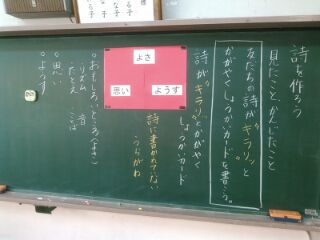 詩を作ろう
見たこと、かんじたこと
友だちの詩が"キラリ"と
かがやくしょうかいカードを書こう。
詩が"キラリ"とかがやく
しょうかいカード
詩に書かれてない
うらがわ
よさ
思い
ようす
○おもしろいところ(よさ)
リズム 音
たとえ ことば
○思い
○ようす